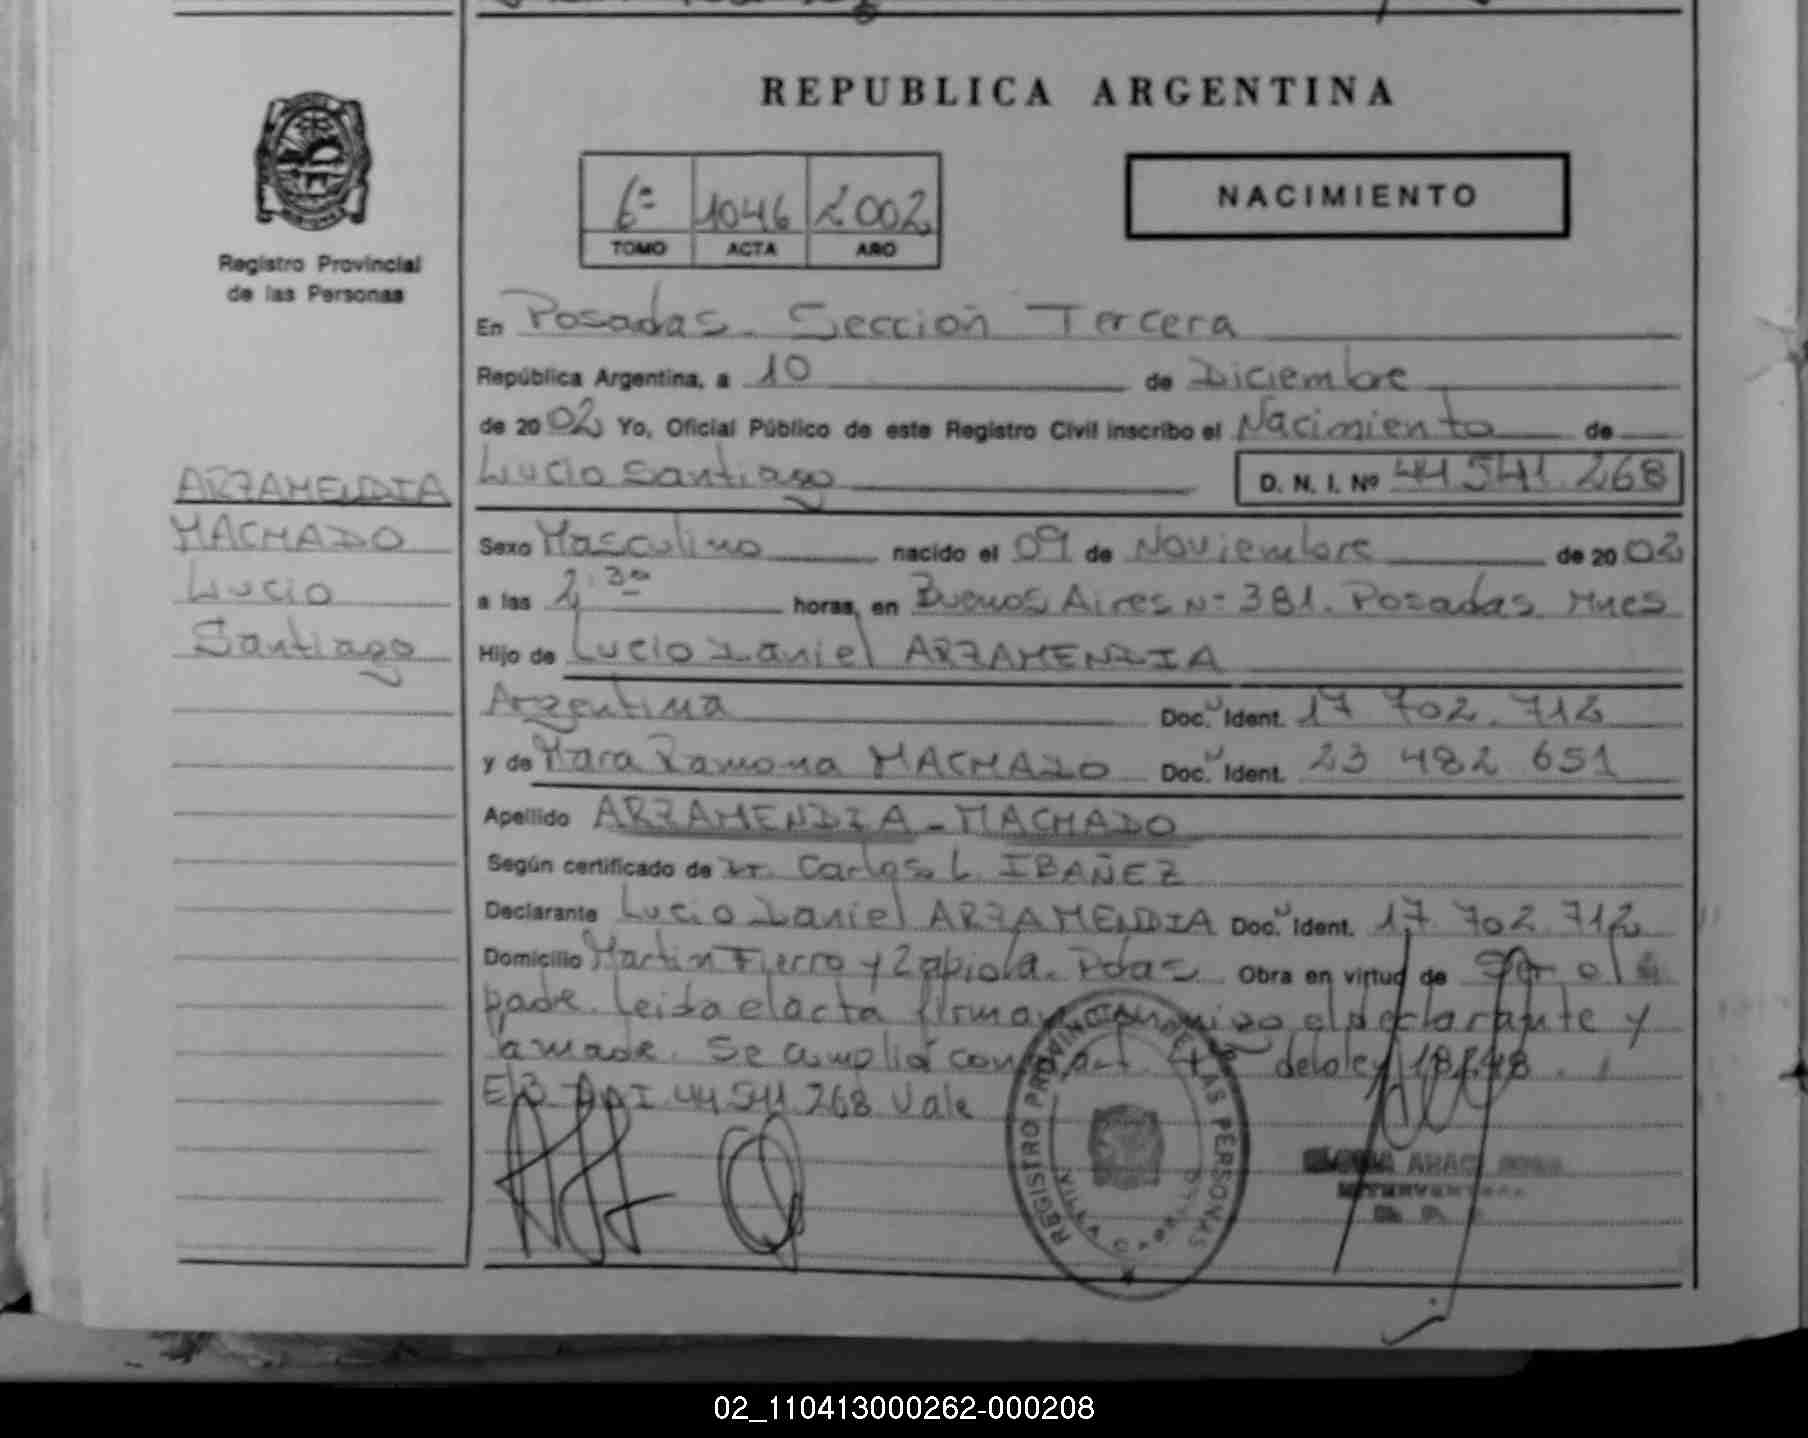 REPUBLICA ARGENTINA
6º 1046 2002
TOMO ACTA AÑO
NACIMIENTO
Registro Provincial
de las Personas
ARZAMENDIA
MACHADO
Lucio
Santiago
En Posadas. Sección Tercera
República Argentina, a 10 de Diciembre
de 2002 Yo, Oficial Público de este Registro Civil inscribo el Nacimiento de
Lucio Santiago D. N. I. Nº 44 541.268
Sexo Masculino nacido el 09 de Noviembre de 2002
a las 2,30 horas, en Buenos Aires Nº 381. Posadas Mnes
Hijo de Lucio Daniel ARZAMENDIA
Argentina Doc. Ident. 17 702.712
y de Mara Ramona MACHADO Doc. Ident. 23 482 651
Apellido ARZAMENDIA - MACHADO
Según certificado de Dr. Carlos L. IBAÑEZ
Declarante Lucio Daniel ARZAMENDIA Doc. Ident. 17.702.712
Domicilio Martin Fierro y Zapiola. Pdas. Obra en virtud de Ser el
padre. Leida el acta firma conmigo el declarante y
la madre. Se cumplió con art. de la ley 18.248.
E/B DNI 44 541.268 Vale
REGISTRO PROVINCIAL DE LAS PERSONAS
VILLA CABELLO
02_110413000262-000208